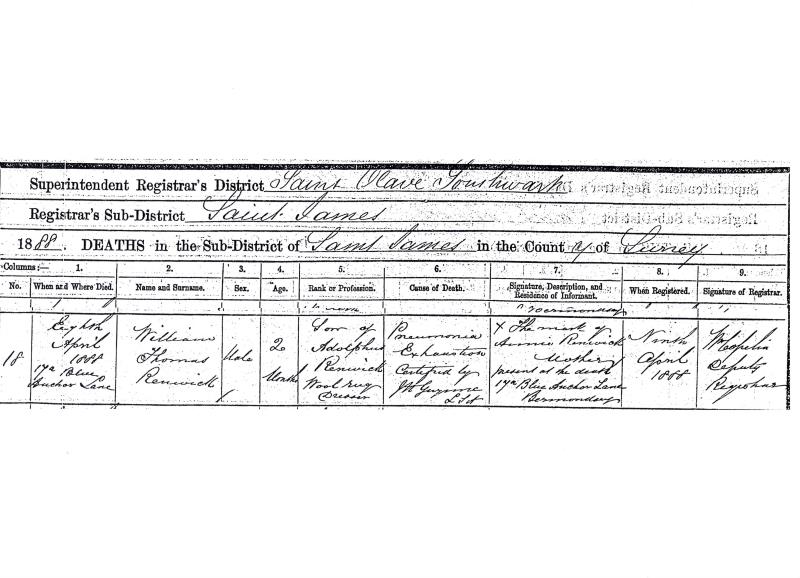 Superintendent Registrar's District Saint Olave Southwark
Registrar's Sub-District Saint James
1888. DEATHS in the Sub-District of Saint James in the County of Surrey
Columns:— 1. 2. 3. 4. 5. 6. 7. 8. 9.
No. When and Where Died. Name and Surname. Sex. Age. Rank or Profession. Cause of Death. Signature, Description, and Residence of Informant. When Registered. Signature of Registrar.
Bermondsey
18
Eighth
April
1888
17a Blue
Anchor Lane
William
Thomas
Renwick
Male
2
Months
Son of
Adolphus
Renwick
Wool rug
Dresser
Pneumonia
Exhaustion
Certified by
X The mark of
Annie Renwick
Mother
present at the death
17a Blue Anchor Lane
Bermondsey
Ninth
April
1888
Deputy
Registrar